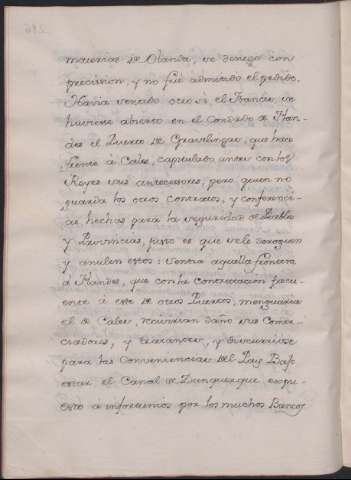 materias de Olanda, se denego con
precission, y no fue admitido el pedido.
Havia vencido otro si, el Frances, se
huviese abierto en el Condado de Flan-
des el Puerto de Gravelingas, que hace
frente a Cales, capitulado antes con los
Reyes sus antecesores, pero quien no
guarda los otros contratos, y conferenci-
as hechas para la seguridad de Pueblos
y Provincias, justo es que se le deroguen
y anulen estos: Venia aquella frontera
a Flandes, que con la Contratacion frecu-
ente a este de otros Puertos, menguaria
el de Cales, recivirian daño sus Comer-
ciadores, y tratantes, y discurriose
para las Conveniencias del Pais Bajo
estar el Canal de Dunquerque expu-
esto a infortunios por los muchos Bancos